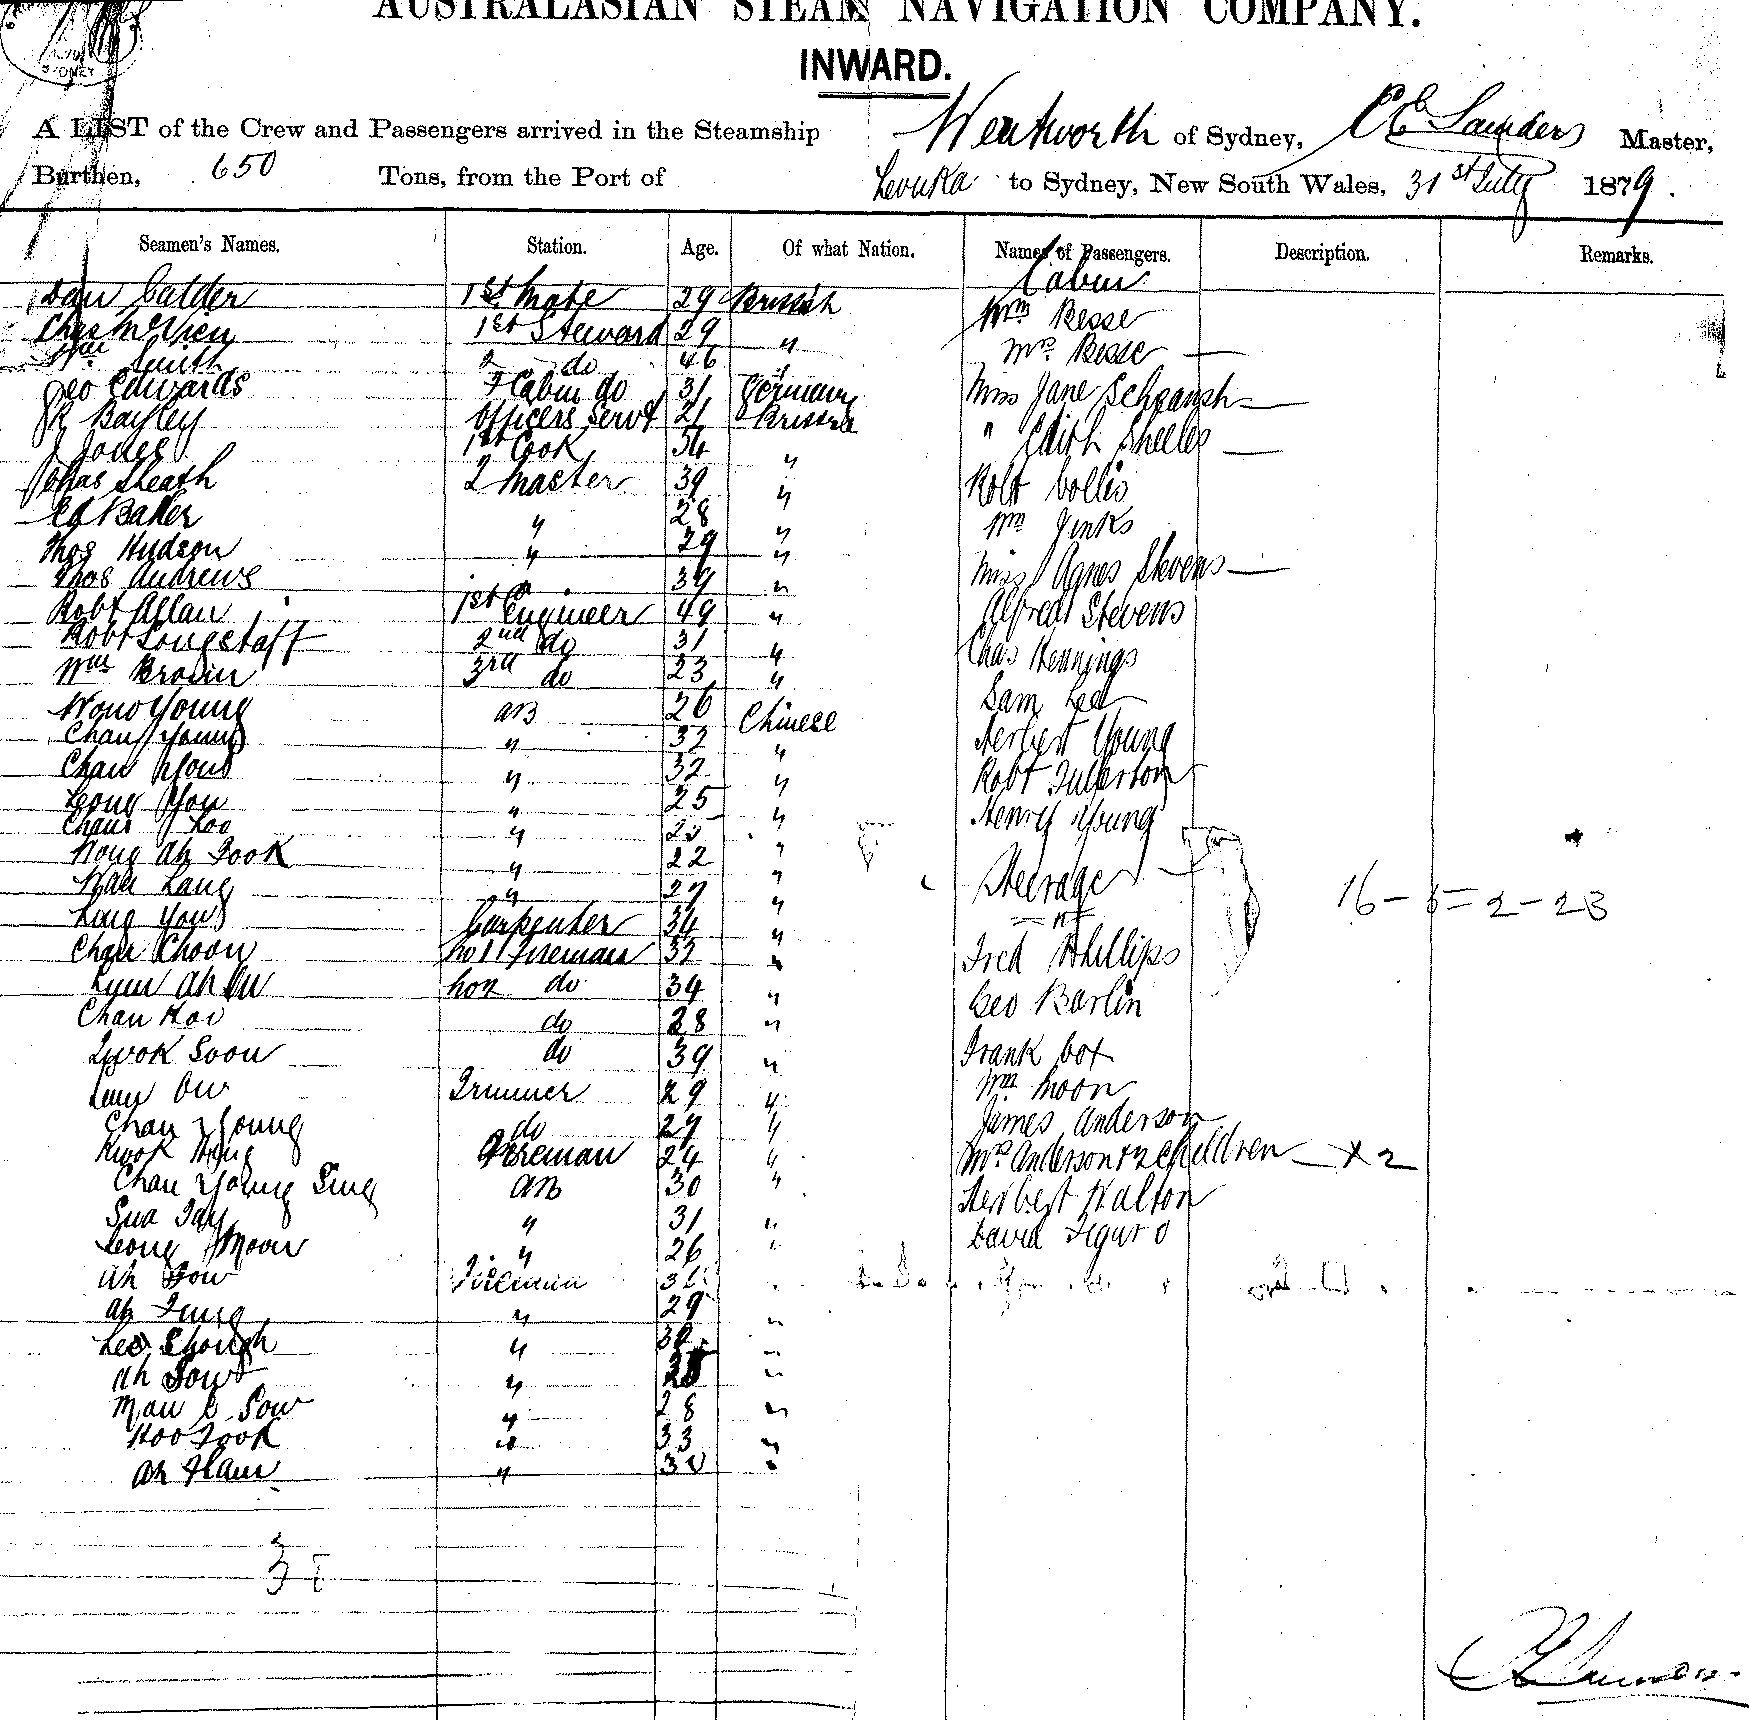 AUSTRALASIAN STEAM NAVIGATION COMPANY.
INWARD.
SYDNEY
A LIST of the Crew and Passengers arrived in the Steamship Wentworth of Sydney, Saunders Master,
Burthen, 650 Tons, from the Port of Levuka to Sydney, New South Wales, 31st July 1879.
Seamen's Names. Station. Age. Of what Nation. Names of Passengers. Description. Remarks.
Cabin
Dan Calder 1st Mate 29 British
Wm Besse
Chas McVien 1st Steward 29 "
Mrs Besse —
Wm Smith 2 do 46 "
Geo Edwards F Cabin do 31 Germany
Miss Jane —
Bayley Officers Servt 21 British
" Edith Sheeles —
J Jones 1st Cook 54 "
Chas Sheath 2 Master 39 "
Robt Collis
Ed Baker " 28 "
Wm Jenks
Thos Hudson " 29 "
Thos Andrews 39 "
Miss Agnes Stevens —
Robt Allan 1st Engineer 49 "
Alfred Stevens
Robt Longstaff 2nd do 31 "
Chas Hennings
Wm Brown 3rd do 23 "
Sam Lee
Wong Young AB 26 Chinese
Chan Young " 32 "
Herbert Young
Chan You " 32 "
Robt Fullerton
Leong You " 25 "
Henry Young
Chan Loo " "
Wong Ah Fook " 22 "
Steerage
Lang " 27 "
16 - 5 = 2 - 23
Ling You Carpenter 34 "
Chan Choon No 1 Fireman 32 "
Fred Phillips
Lum Ah do 34 "
Geo Barlin
Chan Koo do 28 "
Kwok Soon do 39 "
Frank Cox
Lum Ow Trimmer 29 "
Wm Moon
Chan Young do 27 "
James Anderson
Kwok Hong Fireman 24 "
Mrs Anderson + 2 Children — x 2
Chan Young Sing AB 30 "
Herbert Walton
Sua Tay " 31 "
David Figuro
Leong Moon " 26 "
Ah Fireman "
Ah Fung " 29 "
Lee Chough " "
Ah Sow " "
Man Sow " 28 "
Hoo Fook " 33 "
Ah Ham " 30 "